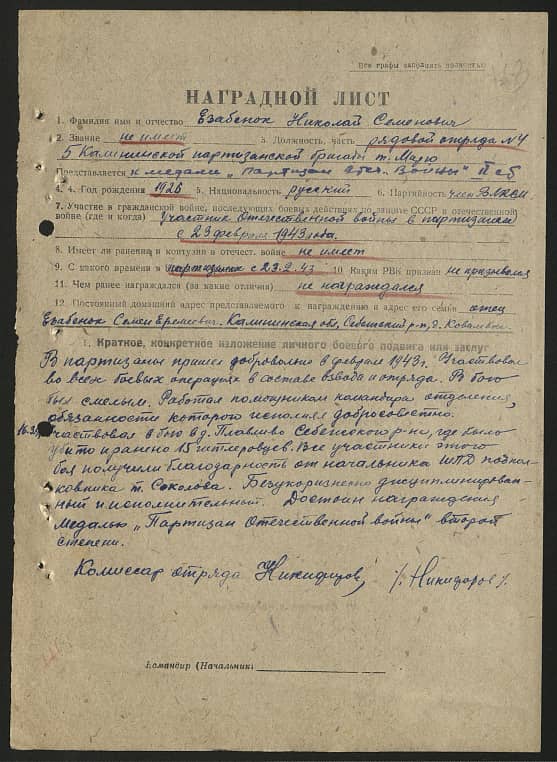 Все графы заполнять полностью
НАГРАДНОЙ ЛИСТ
1. Фамилия имя и отчество Езабенок Николай Семенович
2. Звание не имеет 3. Должность, часть рядовой отряда №4
5 Калининской партизанской бригады т. Марго
Представляется к медали „Партизан Отеч. Войны" II ст
4. 4. Год рождения 1926 5. Национальность русский 6. Партийность член ВЛКСМ
7. Участие в гражданской войне, последующих боевых действиях по защите СССР и отечественной
войне (где и когда) Участник Отечественной войны в партизанах
с 23 февраля 1943 года.
8. Имеет ли ранения и контузии в отечест. войне не имеет
9. С какого времени в партизанах с 23.2.43 10. Каким РВК призван не призывался
11. Чем ранее награждался (за какие отличия) не награждался
12. Постоянный домашний адрес представляемого к награждению и адрес его семьи отец
Езабенок Семен Еремеевич. Калининская обл, Себежский р-н, д.
1. Краткое, конкретное изложение личного боевого подвига или заслуг
В партизаны пришел добровольно в феврале 1943 г. Участвовал
во всех боевых операциях в составе взвода и отряда. В бою
был смелым. Работал помощником командира отделения,
обязанности которого исполнял добросовестно.
Участвовал в бою в д. Себежского р-на, где было
убито и ранено 15 гитлеровцев. Все участники этого
боя получили благодарность от начальника ШПД полко-
ковника т. Соколова. Безукоризненно дисциплинирован-
ный и исполнительный. Достоин награждения
медалью „Партизан Отечественной войны" второй
степени.
Комиссар отряда Никифоров /Никифоров/.
Командир (Начальник)